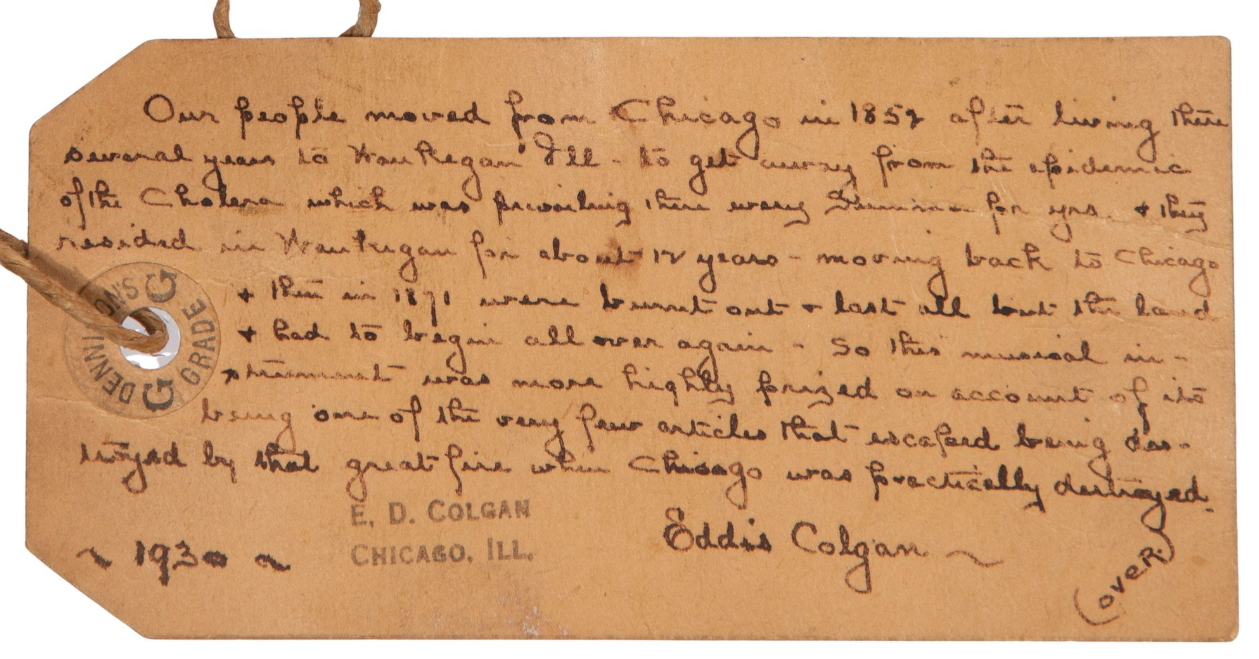 Our people moved from Chicago in 1852 after living there
several years to Waukegan Ill - to get away from the epidemic
of the Cholera which was prevailing there every Summer for yrs. + they
resided in Waukegan for about 12 years - moving back to Chicago
+ then in 1871 were burnt out + lost all but the land
+ had to begin all over again - So this musical in-
strument was more highly prized on account of its
being one of the very few articles that escaped being des-
troyed by that great fire when Chicago was practically destroyed.
E. D. COLGAN
CHICAGO, ILL.
Eddis Colgan ~
~ 1930 ~
(over)
DENNISON'S
GG GRADE